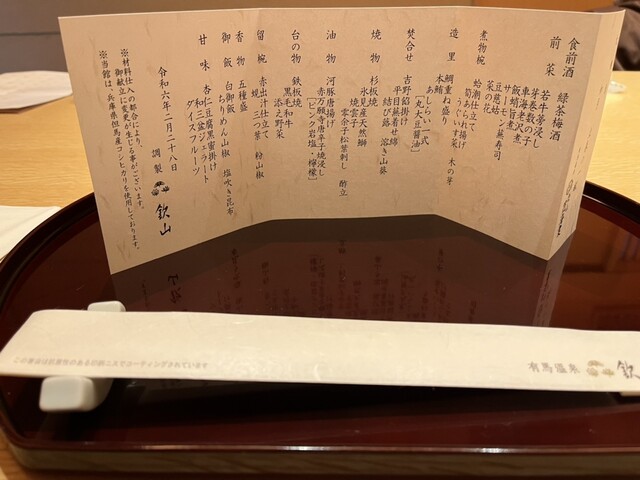 食前酒　緑茶梅酒
前菜　若牛蒡浸し
芽巻数の子
車海老老沢煮
飯蛸旨煮
サーモン蕪寿司
豆慈姑
菜の花
煮物椀　蛤潮仕立て
筍
うぐいす菜　木の芽
造里　鯛重ね盛り
本鮪
あしらい一式
［丸大豆醤油］
焚合せ　吉野餡掛け
平目蕪着せ綿
結び蕗　溶き山葵
焼物　杉板焼
氷見産天然鰤
焼雲子
零余子松葉刺し　酢立
油物　河豚唐揚げ
赤万願寺唐辛子焼浸し
［ピンク岩塩・檸檬］
台の物　鉄板焼
黒毛和牛
添え野菜
留椀　赤出汁仕立て
蜆　三つ葉　粉山椒
香物　五種盛
御飯　白御飯
ちりめん山椒　塩吹き昆布
甘味　杏仁豆腐黒蜜掛け
和三盆ジェラート
ダイスフルーツ
令和六年二月二十八日
調製　欽山
※材料仕入の都合により、
御献立に変更が生じる事がございます。
※当館は、兵庫県但馬産コシヒカリを使用しております。
この箸袋は抗菌性のある印刷ニスでコーティングされています
有馬温泉　欽